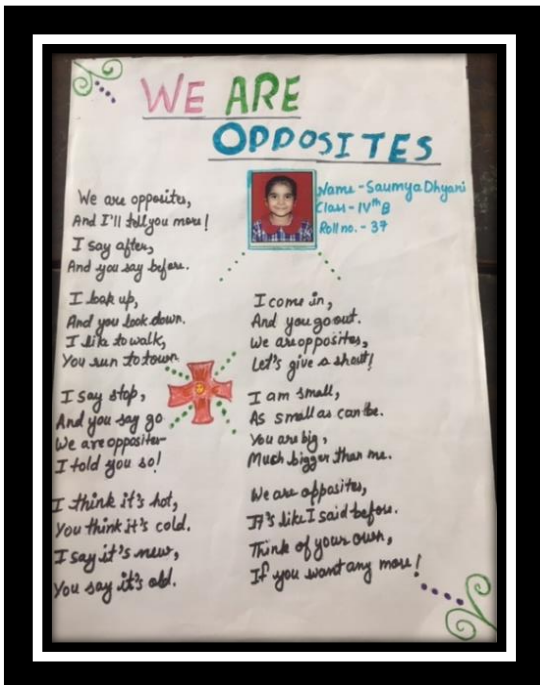 WE ARE
OPPOSITES
Name - Saumya Dhyani
Class - IVth B
Roll no. - 37
We are opposites,
And I'll tell you more!
I say after,
And you say before.
I look up,
And you look down.
I like to walk,
You run to town.
I say stop,
And you say go
We are opposites-
I told you so!
I think it's hot,
You think it's cold.
I say it's new,
You say it's old.
I come in,
And you go out.
We are opposites,
Let's give a shout!
I am small,
As small as can be.
You are big,
Much bigger than me.
We are opposites,
It's like I said before.
Think of your own,
If you want any more!